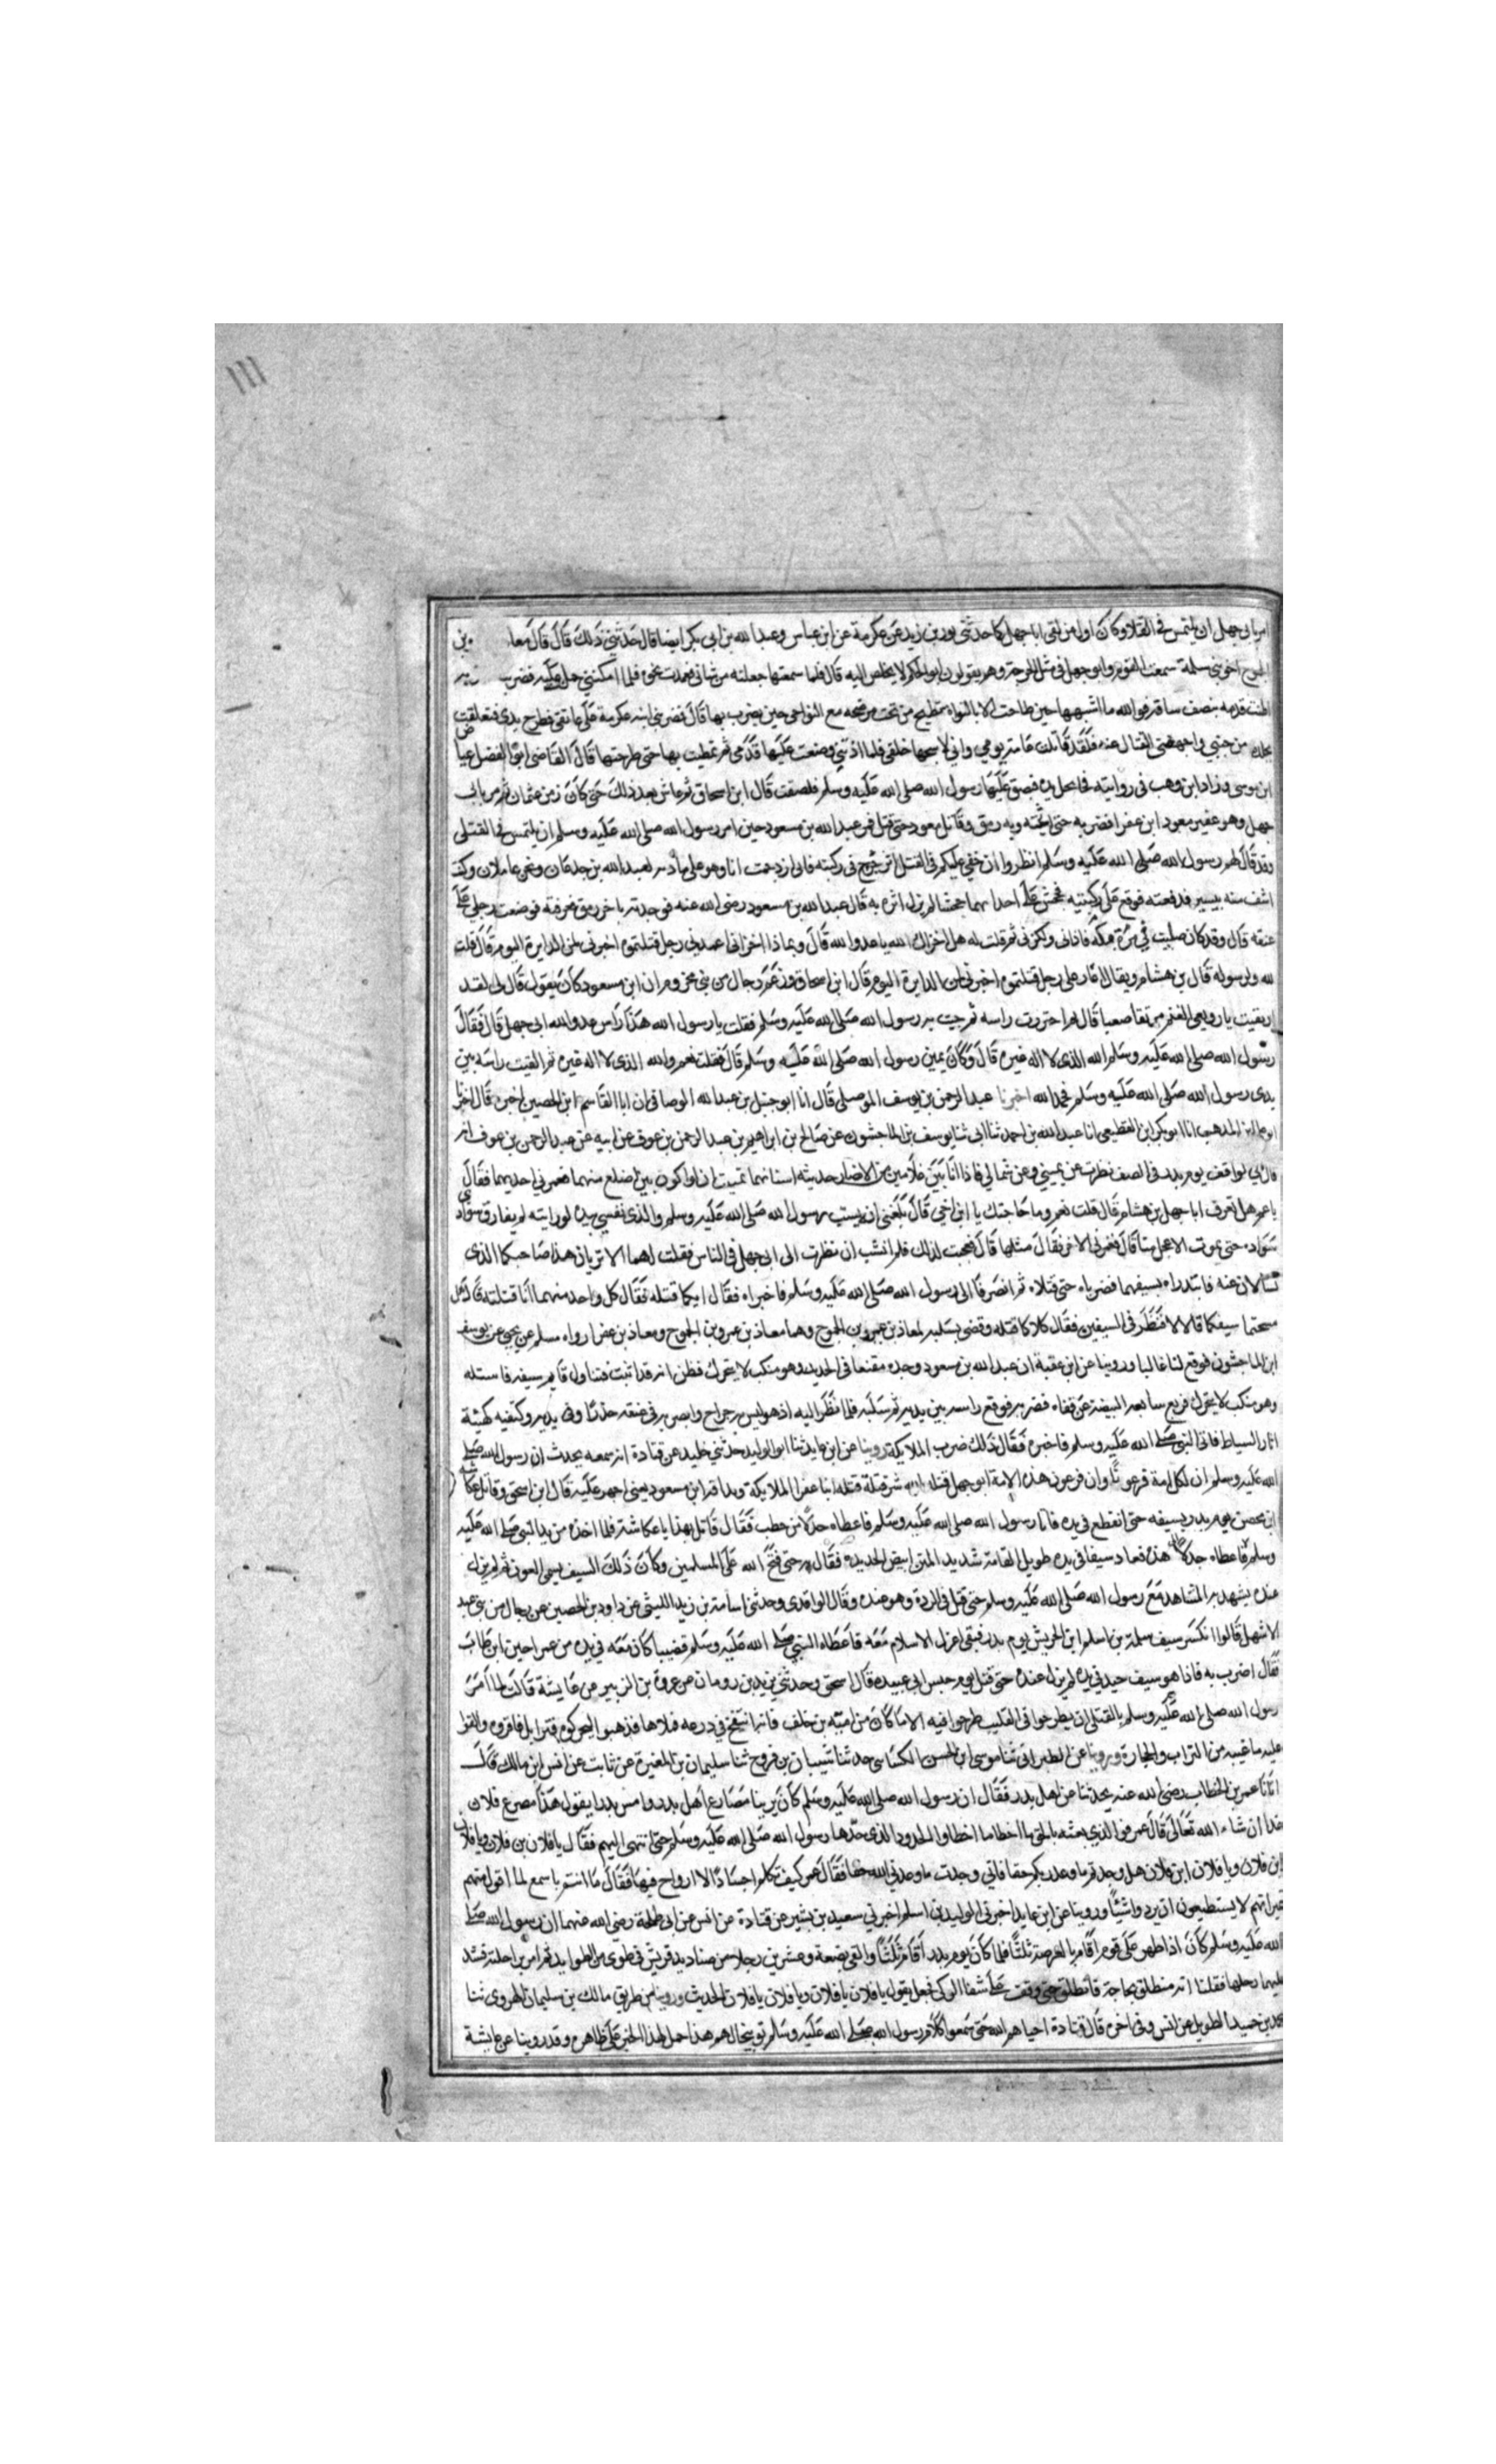 امر بابي جهل ان يلتمس في القتلا وكان اول من لقي ابا جهل كما حدثني ثور بن زيد عن عكرمة عن ابن عباس وعبد الله بن ابي بكر ايضا قال حدثني ذلك قال قال معاذ بن
الجموح اخو بني سلمة سمعت القوم وابو جهل في مثل الحرجة وهم يقولون ابو الحكم لا يخلص اليه قال فلما سمعتها جعلته من شاني فصمدت نحوه فلما امكنني حملت عليه فضربته
اطنت قدمه بنصف ساقه فوالله ما اشبهها حين طاحت الا بالنواه تطيح من تحت مرضحه مع النواحي حين يضرب بها قال فضربني ابنه عكرمة على عاتقي فطرح يدي فتعلقت
بجلده من جنبي واجهضني القتال عنه فلقد قاتلت عامة يومي واني لاسحبها خلفي فلما اذتني وضعت عليها قدمي ثم تمطيت بها حتى طرحتها قال القاضي ابو الفضل عياض
ابن موسى وزاد ابن وهب في روايته فجا يحمل يده فبصق عليها رسول الله صلى الله عليه وسلم فلصقت قال ابن اسحاق ثم عاش بعد ذلك حتى كان زمن عثمان ثم مر بابي
جهل وهو عقير معوذ ابن عفرا فضربه حتى اثخنته وبه رمق وقاتل معوذ حتى قتل فمر عبد الله بن مسعود حين امر رسول الله صلى الله عليه وسلم ان يلتمس في القتلى
وقد قال لهم رسول الله صلى الله عليه وسلم انظروا ان خفي عليكم في القتلى اثر جرح في ركبته فاني ازدحمت انا وهو على مادبة لعبد الله بن جدعان ونحن غلامان وكنت
اشف منه بيسير فدفعته فوقع على ركبتيه فجحش على احداهما جحشا لم يزل اثره به قال عبد الله بن مسعود رضي الله عنه فوجدته باخر رمق فعرفته فوضعت رجلي على
عنقه قال وقد كان ضبث بي مرة بمكة فاذاني ولكزني ثم قلت له هل اخزاك الله يا عدو الله قال وبماذا اخزاني اعمد من رجل قتلتموه اخبرني لمن الدايرة اليوم قال قلت
لله ولرسوله قال بن هشام ويقال اعار على رجل قتلتموه اخبرني لمن الدايرة اليوم قال ابن اسحاق وزعم رجال من بني مخزوم ان ابن مسعود كان يقول قال لي لقد
ارتقيت يا رويعي الغنم مرتقا صعبا قال ثم احتززت راسه ثم جيت به رسول الله صلى الله عليه وسلم فقلت يا رسول الله هذا راس عدو الله ابي جهل قال فقال
رسول الله صلى الله عليه وسلم الله الذي لا اله غيره قال وكان يمين رسول الله صلى الله عليه وسلم قال فقلت نعم والله الذي لا اله غيره ثم القيت راسه بين
يدي رسول الله صلى الله عليه وسلم فحمد الله اخبرنا عبد الرحمن بن يوسف الموصلي قال انا ابو حنبل بن عبد الله الوصافي ان ابا القاسم ابن الحصين اخبره قال اخبرنا
ابو علي ابن المذهب انا ابو بكر ابن القطيعي انا عبد الله بن احمد ثنا ابي ثنا يوسف بن الماجشون عن صالح بن ابراهيم بن عبد الرحمن بن عوف عن ابيه عن عبد الرحمن بن عوف انه
قال اني لواقف يوم بدر في الصف نظرت عن يميني وعن شمالي فاذا انا بين غلامين من الانصار حديثه اسنانهما تمنيت ان لو اكون بين اضلع منهما فغمزني احدهما فقال
يا عم هل تعرف ابا جهل ابن هشام قال قلت نعم وما حاجتك يا ابن اخي قال بلغني انه يسب رسول الله صلى الله عليه وسلم والذي نفسي بيده لو رايته لم يفارق سوادي
سواده حتى يموت الاعجل منا قال فغمزني الاخر فقال مثلها قال فعجبت لذلك فلم انشب ان نظرت الى ابي جهل في الناس فقلت لهما الا تريان هذا صاحبكما الذي
تسالان عنه فابتدراه بسيفيهما فضرباه حتى قتلاه ثم انصرفا الى رسول الله صلى الله عليه وسلم فاخبراه فقال ايكما قتله فقال كل واحد منهما انا قتلته قال هل
مسحتما سيفكما قالا لا فنظر في السيفين فقال كلاكما قتله وقضى بسلبه لمعاذ بن عمرو بن الجموح وهما معاذ بن عمرو بن الجموح ومعاذ بن عفرا رواه مسلم عن يحيى عن يوسف
ابن الماجشون فوقع لنا عاليا وروينا عن ابن عقبة ان عبد الله بن مسعود وجده مقنعا في الحديد وهو منكب لا يتحرك فظن انه قد اثبت فتناول قايم سيفه فاستله
وهو منكب لا يتحرك فرفع سابغه البيضة عن قفاه فضربه فوقع راسه بين يديه ثم سلبه فلما نظر اليه اذ هو ليس به جراح وابصر في عنقه حدرا وفي يديه وكتفيه كهيئة
اثار السياط فاتى النبي صلى الله عليه وسلم فاخبره فقال ذلك ضرب الملايكة روينا عن ابن عايد ثنا ابو الوليد حدثني خليد عن قتادة انه سمعه يحدث ان رسول الله صلى
الله عليه وسلم ان لكل امة فرعونا وان فرعون هذه الامة ابو جهل قتله الله شر قتلة قتله ابنا عفرا الملايكة وتدافه ابن مسعود يعني اجهز عليه قال ابن اسحق وقاتل عكاشة
ابن محصن يوم بدر بسيفه حتى انقطع في يده فاتا رسول الله صلى الله عليه وسلم فاعطاه جذلا من حطب فقال قاتل بهذا يا عكاشة فلما اخذه من يد النبي صلى الله عليه
وسلم هزه فعاد سيفا في يده طويل القامة شديد المتن ابيض الحديدة فقاتل به حتى فتح الله على المسلمين وكان ذلك السيف يسمى العون ثم لم يزل
عنده يشهد به المشاهد مع رسول الله صلى الله عليه وسلم حتى قتل في الردة وهو عنده وقال الواقدي وحدثني اسامة بن زيد الليثي عن داود بن الحصين عن رجال من بني عبد
الاشهل قالوا انكسر سيف سلمة بن اسلم ابن الحريش يوم بدر فبقي اعزل لا سلام معه فاعطاه النبي صلى الله عليه وسلم قضيبا كان معه في يده من عراجين ابن طاب
فقال اضرب به فاذا هو سيف جيد في يده لم يزل عنده حتى قتل يوم جسر ابي عبيده قال اسحق وحدثني يزيد بن رومان عن عروة بن الزبير عن عايشة قالت لما امر
رسول الله صلى الله عليه وسلم بالقتلى ان يطرحوا في القليب طرحوا فيه الا ما كان من امية بن خلف فانه انتفخ في درعه فملاها فذهبوا ليحركوه فتزايل فاقروه والقوا
عليه ما غيبه من التراب والحجارة وروينا عن الطبراني ثنا موسى ابن الحسن الكسائي حدثنا شيبان بن فروخ ثنا سليمان بن المغيرة عن ثابت عن انس ابن مالك قال
انانا عمر بن الخطاب رضي الله عنه يحدثنا عن اهل بدر فقال ان رسول الله صلى الله عليه وسلم كان يرينا مصارع اهل بدر وامس بدر يقول هذا مصرع فلان
غدا ان شاء الله تعالى قال عمر فوالذي بعثه بالحق ما اخطاوا الحدود الذي حدها رسول الله صلى الله عليه وسلم حتى انتهى اليهم فقال يا فلان بن فلان ويا فلان
ابن فلان ويا فلان ابن فلان هل وجدتم ما وعد ربكم حقا فاني وجدت ما وعدني الله حقا فقال عمر كيف تكلم اجسادا لا ارواح فيها فقال ما انتم باسمع لما اقول منهم
غير انهم لا يستطيعون ان يردوا شيئا وروينا عن ابن عايد اخبرني الوليد بن اسلم اخبرني سعيد بن بشير عن قتادة عن انس عن ابي طلحة رضي الله عنهما ان رسول الله صلى
الله عليه وسلم كان اذا ظهر على قوم اقام بالعرصة ثلثا فلما كان يوم بدر اقام ثلثا والقى بضعة وعشرين رجلا من صناديد قريش في طوى من اطوا بدر ثم امر براحلته فشد
عليها رحلها فقلنا انه منطلق لحاجة فانطلق حتى وقف على شفا الركي فجعل يقول يا فلان يا فلان ويا فلان يا فلان الحديث وروينا من طريق مالك بن سليمان الهروي ثنا
حميد الطويل عن انس وفي اخره قال قتادة احياهم الله حتى سمعوا كلام رسول الله صلى الله عليه وسلم توبيخا لهم هذا حمل لهذا الخبر على ظاهره وقد روينا عن عايشة